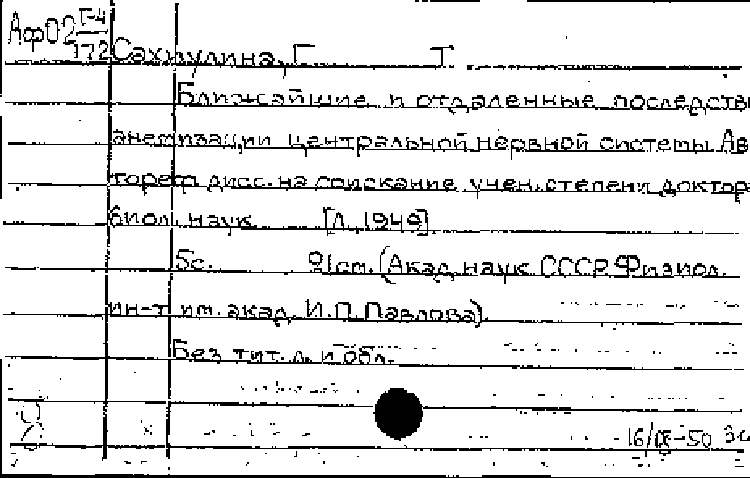 Аф02 Г-4
172 Сахиулина, Г. Т.
Ближайшие и отдаленные последств
анемизации центральной нервной системы. Ав
тореф. дисс. на соискание учен. степени доктор
биол. наук [Л., 1949]
5с. 21см. (Акад. наук СССР. Физиол.
ин-т им. акад. И. П. Павлова).
Без тит. л. и обл.
16/IX-50